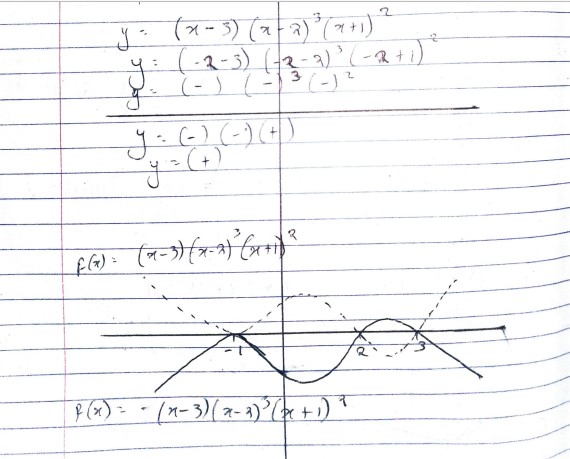 y = (x-3)(x-2)³(x+1)²
y = (-2-3)(-2-2)³(-2+1)²
y = (-)(-)³(-)²
y = (-)(-)(+)
y = (+)
f(x) = (x-3)(x-2)³(x+1)²
-1 2 3
f(x) = -(x-3)(x-2)³(x+1)²